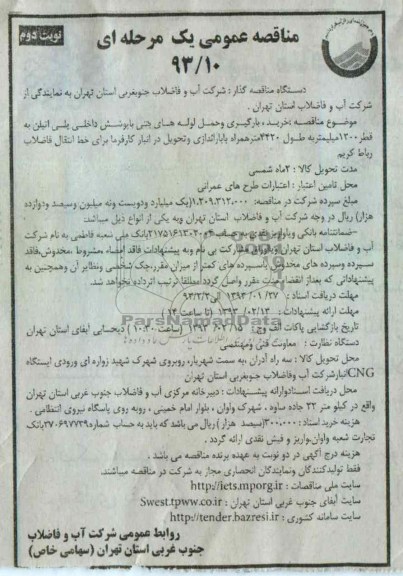 نوبت دوم
مناقصه عمومی یک مرحله ای
۹۳/۱۰
دستگاه مناقصه گذار: شرکت آب و فاضلاب جنوبغربی استان تهران به نمایندگی از
شرکت آب و فاضلاب استان تهران .
موضوع مناقصه:خرید، بارگیری وحمل لوله های بتنی باپوشش داخلی پلی اتیلن به
قطر۱۲۰۰میلیمتربه طول ۴۴۲۰مترهمراه باباراندازی وتحویل در انبار کارفرما برای خط انتقال فاضلاب
رباط کریم
مدت تحویل کالا : ۲ماه شمسی
محل تامین اعتبار : اعتبارات طرح های عمرانی
مبلغ سپرده شرکت در مناقصه: ۱،۲۰۹،۳۱۲،۰۰۰(یک میلیارد ودویست ونه میلیون وسیصد ودوازده
هزار) ریال در وجه شرکت آب و فاضلاب استان تهران وبه یکی از انواع ذیل میباشد:
-ضمانتنامه بانکی ویاواریزنقدی به حساب ۲۱۷۵۱۶۱۳۰۲۰۰۴بانک ملی شعبه فاطمی به نام شرکت
آب و فاضلاب استان تهران اوراق مشارکت بی نام وبه پیشنهادات فاقد امضاء،مشروط ،مخدوش،فاقد
سپرده وسپرده های مخدوش یاسپرده های کمتر از میزان مقرر،چک شخصی ونظایر آن وهمچنین به
پیشنهاداتی که بعداز انقضاءمدت مقرر واصل گردد مطلقا ترتیب اثرداده نخواهد شد.
مهلت دریافت اسناد : ۱۳۹۳/۰۱/۲۷ الی۹۳/۲/۲
مهلت ارائه پیشنهادات : ۱۳۹۳/۰۲/۱۳ (تا ساعت ۱۴)
تاریخ بازگشایی پاکات الف وب وج : ۱۳۹۳/۰۲/۱۵ (ساعت ۱۰:۳۰) درمحل آبفای استان تهران
دستگاه نظارت : معاونت فنی ومهندسی
محل تحویل کالا : سه راه آدران ،به سمت شهریار، روبروی شهرک شهید زواره ای ورودی ایستگاه
CNGانبارشرکت آب وفاضلاب جنوبغربی استان تهران
محل دریافت اسنادوارائه پیشنهادات : دبیرخانه مرکزی آب و فاضلاب جنوب غربی استان تهران
واقع در کیلو متر ۲۲ جاده ساوه ، شهرک واوان ، بلوار امام خمینی ، روبه روی پاسگاه نیروی انتظامی .
هزینه خرید اسناد :۳۰۰،۰۰۰(سیصد هزار) ریال می باشد که باید به حساب شماره۳۷۰۶۹۷۷۳۹بانک
تجارت شعبه واوان،واریز و فیش نقدی ارائه گردد .
هزینه درج آگهی در دو نوبت به عهده برنده مناقصه می باشد .
فقط تولیدکنندگان ونمایندگان انحصاری مجاز به شرکت در مناقصه میباشند.
سایت ملی مناقصات : http://iets.mporg.ir
سایت آبفای جنوب غربی استان تهران : Swest.tpww.co.ir
سایت سامانه کشوری : http://tender.bazresi.ir
روابط عمومی شرکت آب و فاضلاب
جنوب غربی استان تهران (سهامی خاص)